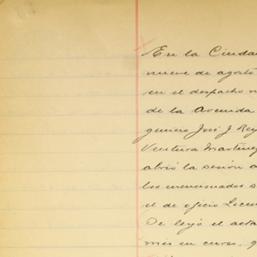 En la Ciuda
nueve de agosto
en el despacho n
de la Avenida
geniero José J. Rey
Ventura Martínez
abrió la sesión a
los mencionados s
el de oficio Licen
Se leyó el acta
mes en curso, q